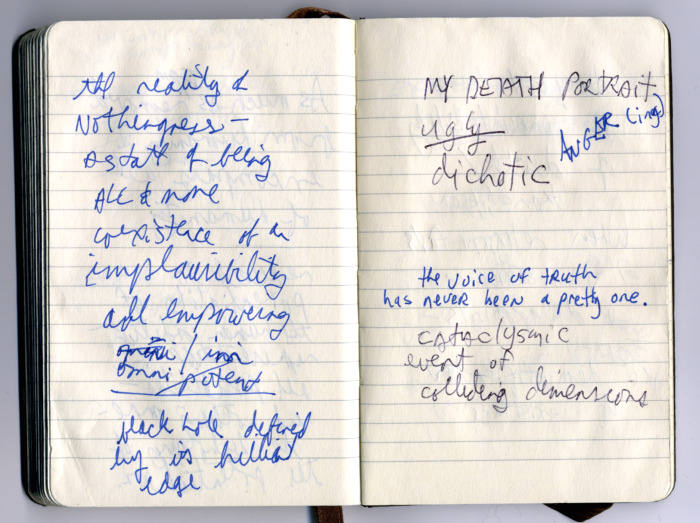 the reality of
Nothingness —
a state of being
All & none
coexistence of an
implausibility
all empowering
omni potent
black hole defined
by its brilliant
edge
MY DEATH PORTRAIT
ugly
ANGER (ing)
dichotic
the voice of truth
has never been a pretty one.
cataclysmic
event of
colliding dimensions